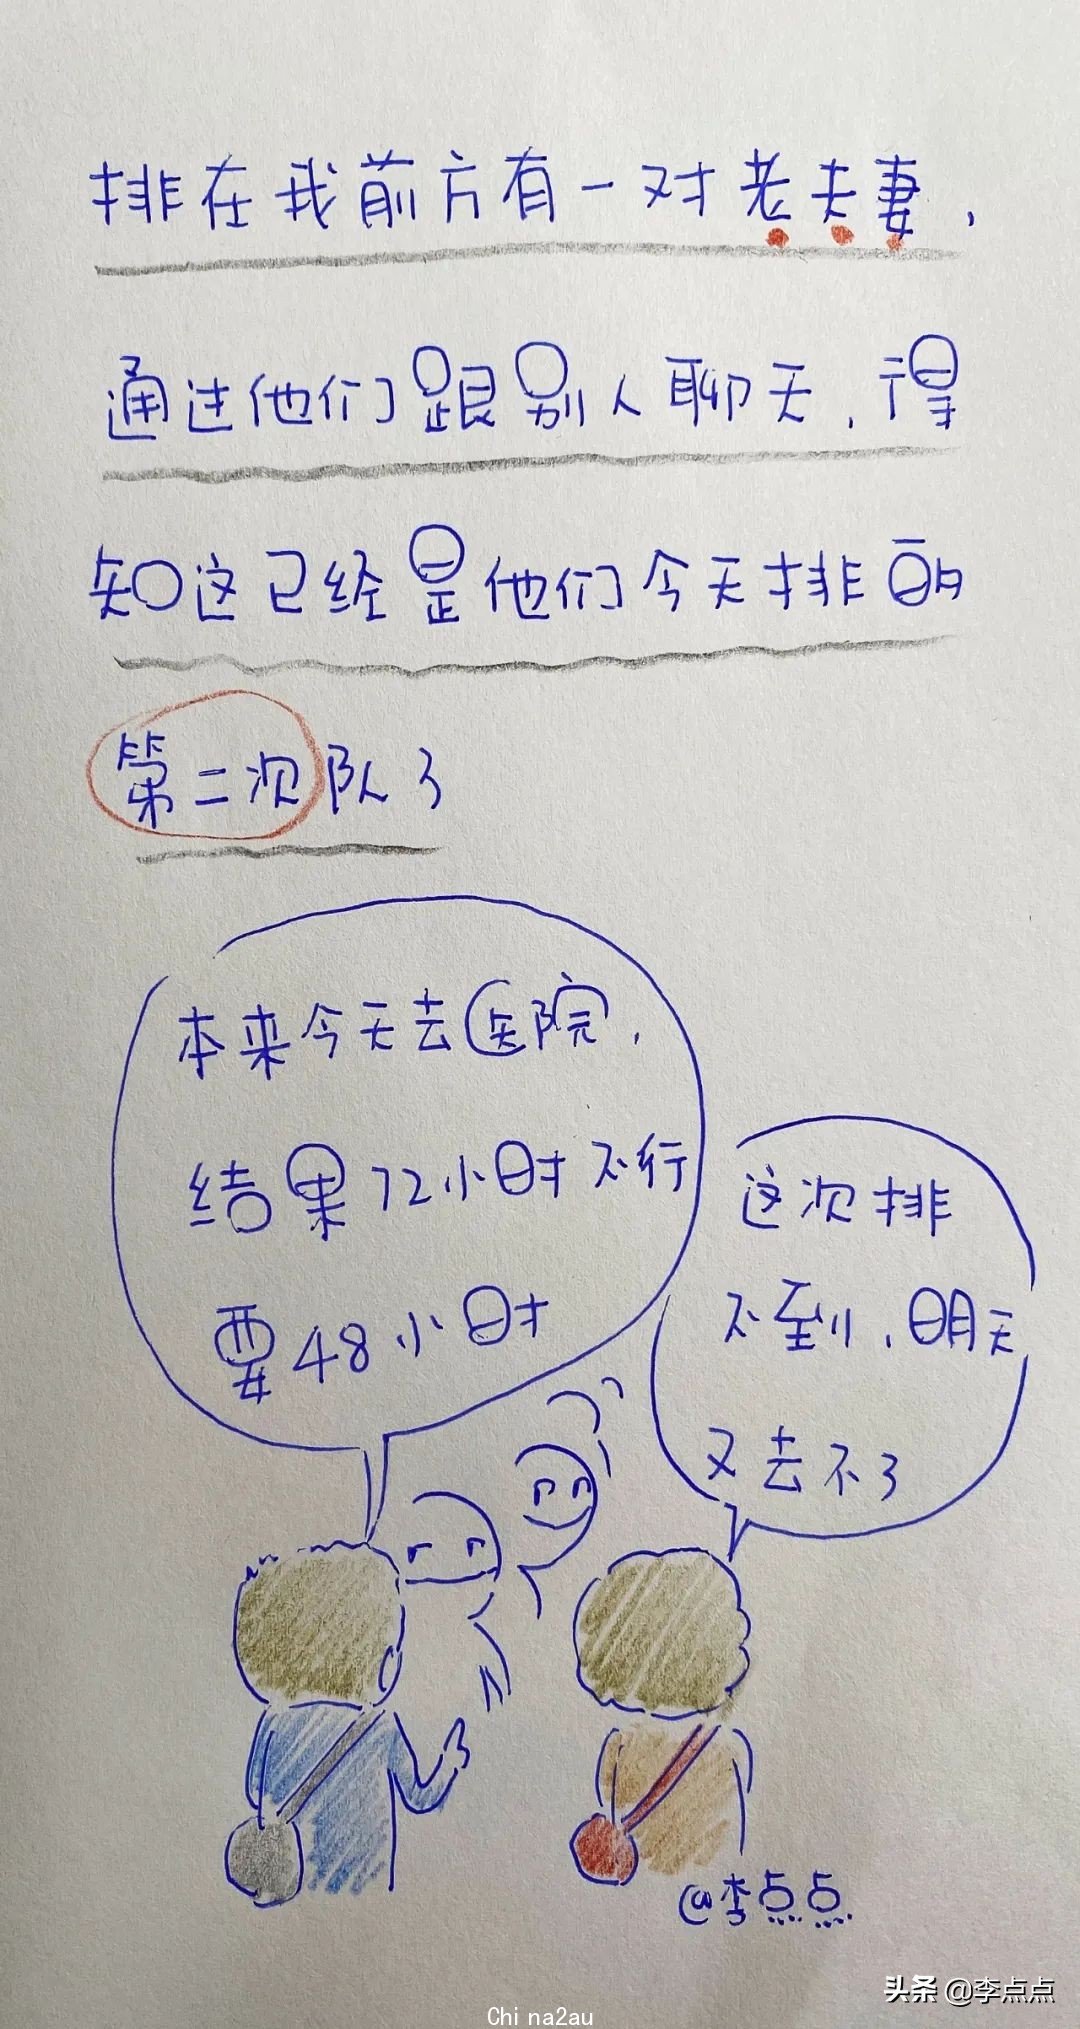 排在我前方有一对老夫妻，
通过他们跟别人聊天，得
知这已经是他们今天排的
第二次队了
本来今天去医院，
结果72小时不行
要48小时
这次排
不到，明天
又去不了
@李点点
头条 @李点点
China2au